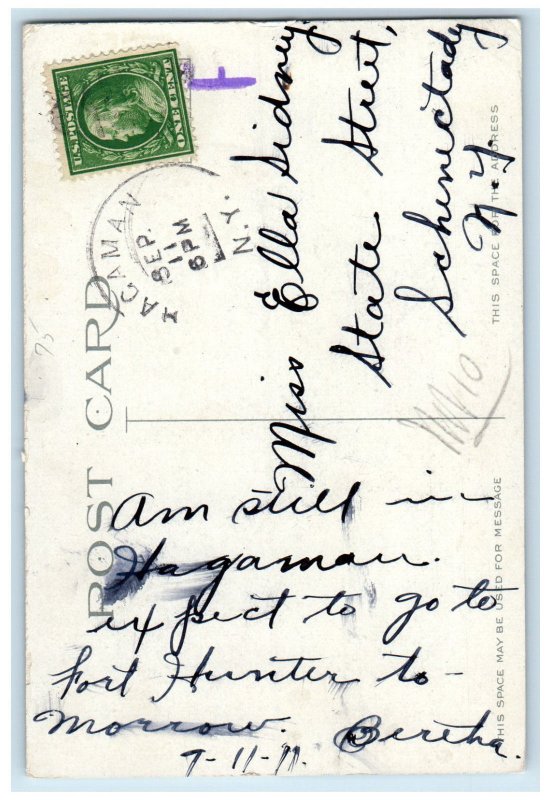 POST CARD
U.S. POSTAGE
ONE CENT
HAGAMAN
SEP.
11
6 PM
N.Y.
Miss Ella Sidney
State Street,
Schenectady
N.Y.
THIS SPACE FOR THE ADDRESS
75
10
Am still in
Hagaman.
expect to go to
Fort Hunter to-
morrow.
Bertha.
9-11-11.
THIS SPACE MAY BE USED FOR MESSAGE